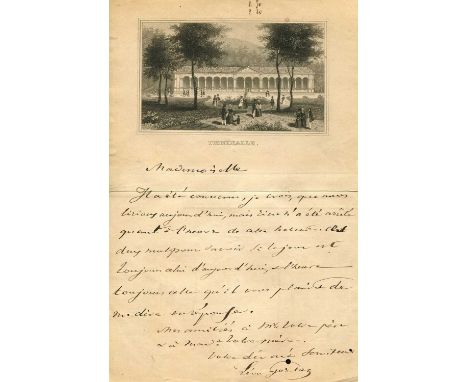 TRINKHALLE.
Mademoiselle
Il a été convenu, je crois, que nous
lirions aujourd'hui, mais rien n'a été arrêté
quant à l'heure de cette lecture.
deux mots pour savoir si le jour est
toujours celui d'aujourd'hui, et l'heure
toujours celle qu'il vous plaira de
me dire
Mes amitiés à Mr votre père
& à Made votre mère.
Votre dévoué serviteur
Léon Gozlan